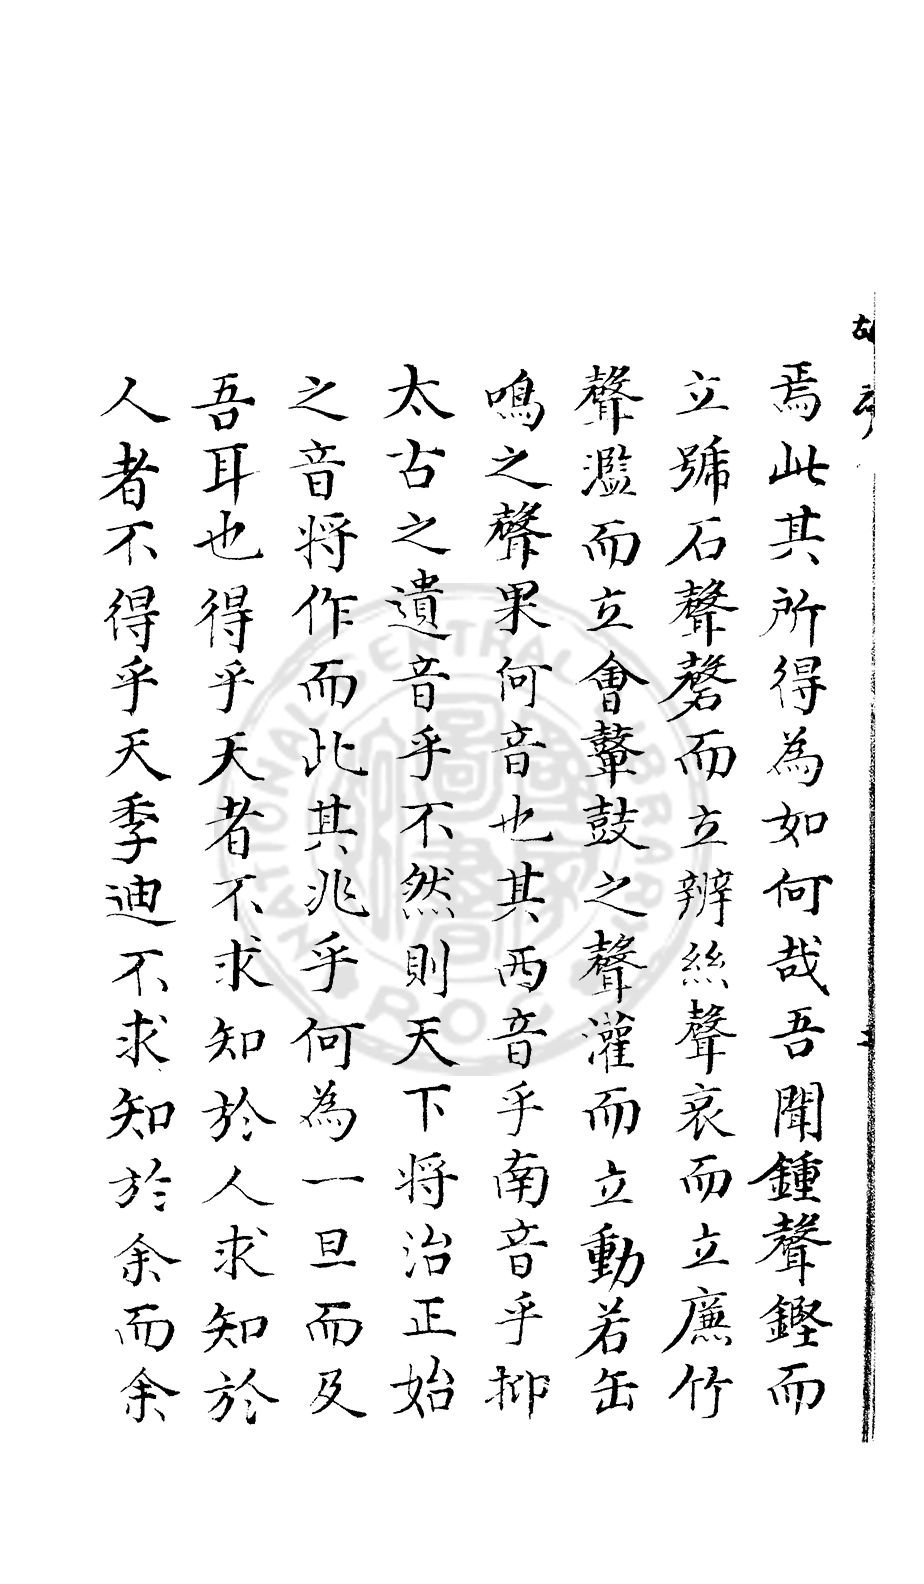 焉此其所得為如何哉吾聞鍾聲鏗而
立號石聲磬而立辨絲聲哀而立廉竹
聲濫而立會鼙鼓之聲灌而立動若缶
鳴之聲果何音也其西音乎南音乎抑
太古之遺音乎不然則天下將治正始
之音將作而此其兆乎何為一旦而及
吾耳也得乎天者不求知於人求知於
人者不得乎天季迪不求知於余而余
NATIONAL CENTRAL LIBRARY
TAIWAN R.O.C.